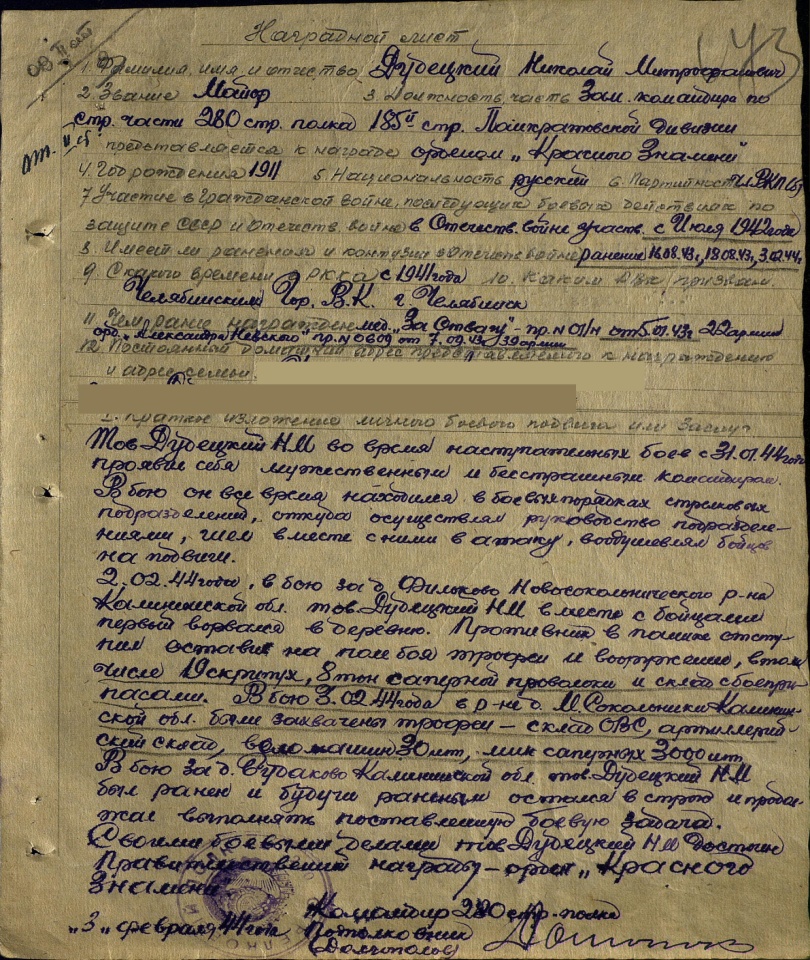 Наградной лист
1. Фамилия, имя, и отчество Дубецкий Николай Митрофанович
2. Звание Майор 3. Должность, часть Зам. командира по
стр. части 280 стр. полка 185й стр. Панкратовской Дивизии
представляется к награде орденом „Красного Знамени"
4. Год рождения 1911 5. Национальность русский 6. Партийность Чл. ВКП(б)
7. Участие в гражданской войне, последующих боевых действиях по
защите СССР и отечеств. войне в Отечеств. войне участв. с Июля 1942 года
8. Имеет ли ранения и контузии в Отечеств. войне Ранения 16.08.43г, 18.08.43г, 3.02.44г.
9. С какого времени в РККА с 1941 года 10. Каким РВК призван
Челябинским Гор. В.К. г. Челябинск
11. Чем ранее награжден мед. „За Отвагу"- пр. N 01/н от 5.01.43г 22 армии
орд. „Александра Невского" пр. N 0609 от 7.09.43г 39 армии
12. Постоянный домашний адрес представляемого к награждению
и адрес семьи
1. Краткое изложение личного боевого подвига или заслуг
Тов. Дубецкий НМ во время наступательных боев с 31.01.44 года
проявил себя мужественным и бесстрашным командиром.
В бою он все время находился в боевых порядках стрелковых
подразделений, откуда осуществлял руководство подразделе-
ниями, шел вместе с ними в атаку, воодушевлял бойцов
на подвиги.
2.02.44 года, в бою за д. Фильково Новосокольнического р-на
Калининской обл. тов. Дубецкий НМ вместе с бойцами
первый ворвался в деревню. Противник в панике отсту-
пил оставив на поле боя трофеи и вооружение, в том
числе 19 скрипух, 8 тон саперной проволоки и склад с боепри-
пасами. В бою 3.02.44 года в р-не д. М Сокольники Калинин-
ской обл. были захвачены трофеи - склад ОВС, артиллерий-
ский склад, веломашин 30 шт, мин саперных 3000 шт
В бою за д. Бураково Калининской обл тов. Дубецкий НМ
был ранен и будучи раненым остался в строю и продол-
жал выполнять поставленную боевую задачу.
Своими боевыми делами тов Дубецкий НМ Достоин
Правительственной награды - орден „Красного
Знамени"
„3" февраля 44 года Командир 280 стр. полка
Подполковник
(Долгополов)